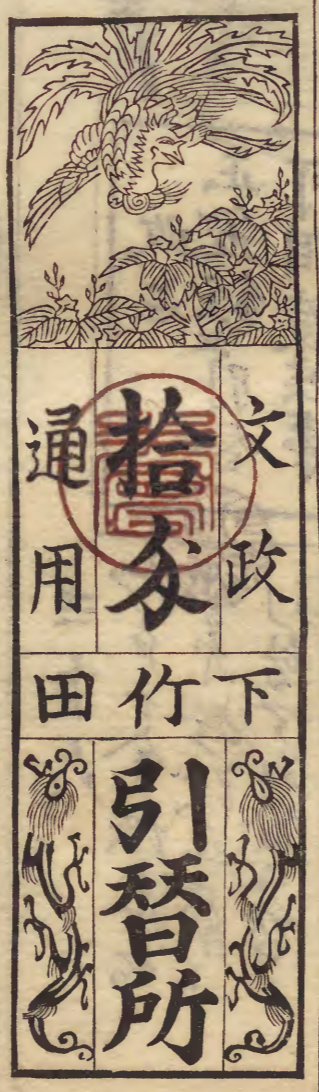 文政
拾匁
通用
下竹田
引替所